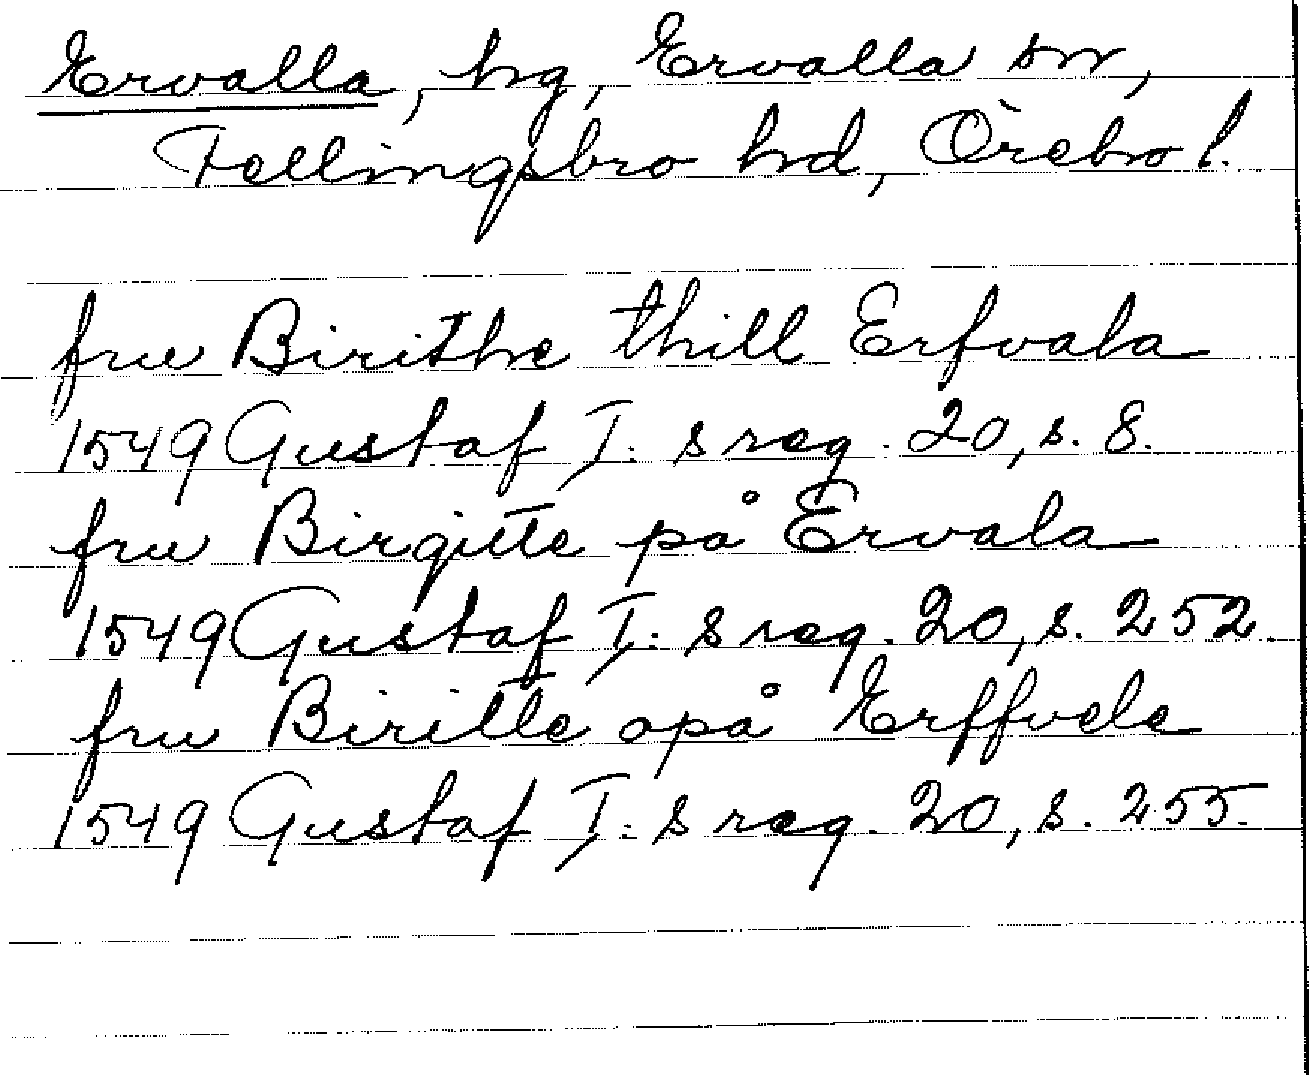 Ervalla, hg, Ervalla sn,
Fellingsbro hd, Örebro l.
fru Birithe thill Erfvala
1549 Gustaf I:s reg. 20, s. 8.
fru Birgitte på Ervala
1549 Gustaf I:s reg. 20, s. 252.
fru Biritte opå Erffvele
1549 Gustaf I:s reg. 20, s. 255.